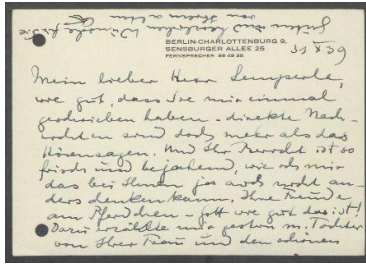 Grüßen und herzlichen Wünschen für Sie
von Ihrem alten GK
BERLIN-CHARLOTTENBURG 9,
SENSBURGER ALLEE 25
FERNSPRECHER
31 X 39
Mein lieber Herr Lemperle,
wie gut, dass Sie mir einmal
geschrieben haben – direkte Nach-
richten sind doch mehr als das
Hörensagen. Und Ihr Bericht ist so
frisch und bejahend, wie ich mir
das bei Ihnen ja auch nicht an-
ders denken kann. Ihre Freude
am Pferdchen – Gott wie gut das ist!
Davon erzählte mir gestern m. Tochter
von Ihrer Frau und den schönen